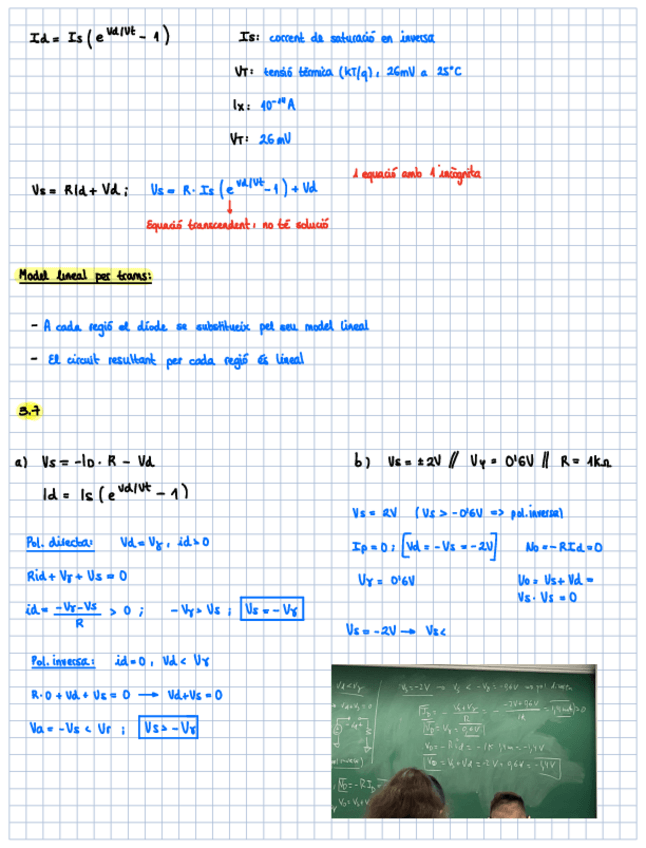 Id = Is ( e^Vd/Vt - 1 )
Is: corrent de saturació en inversa
VT: tensió tèrmica (kT/q), 26mV a 25°C
Ix: 10^-14 A
VT: 26 mV
Vs = RId + Vd ; Vs = R · Is ( e^Vd/Vt - 1 ) + Vd
1 equació amb 1 incògnita
Equació transcendent, no té solució
Model lineal per trams:
- A cada regió el díode se substitueix pel seu model lineal
- El circuit resultant per cada regió és lineal
3.7
a) Vs = -ID · R - Vd
Id = Is ( e^Vd/Vt - 1 )
Pol. directa: Vd = Vγ , id > 0
Rid + Vγ + Vs = 0
id = -Vγ-Vs / R > 0 ; -Vγ > Vs ; Vs = - Vγ
Pol. inversa: id = 0 , Vd < Vγ
R · 0 + Vd + Vs = 0 → Vd+Vs = 0
Va = -Vs < Vr ; Vs > - Vγ
b) Vs = ± 2V // Vγ = 0'6V // R = 1kΩ
Vs = 2V ( Vs > -0'6V => pol. inversa)
ID = 0 ; [Vd = -Vs = -2V] No = - RId = 0
Vγ = 0'6V
Uo = Us + Vd =
Vs - Vs = 0
Vs = -2V → Vs <